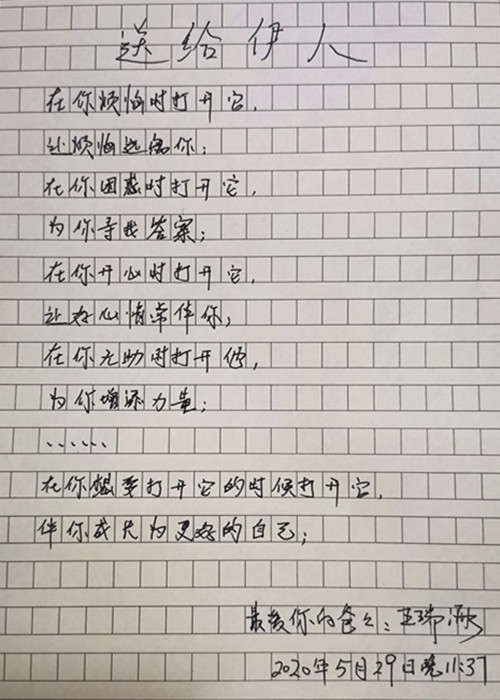 送给伊人
在你烦恼时打开它，
让烦恼远离你；
在你困惑时打开它，
为你寻找答案；
在你开心时打开它，
让好心情常伴你；
在你无助时打开他，
为你增添力量；
......
在你想要打开它的时候打开它，
伴你成长为更好的自己；
最爱你的爸爸：王瑞
2020年5月29日晚11:37